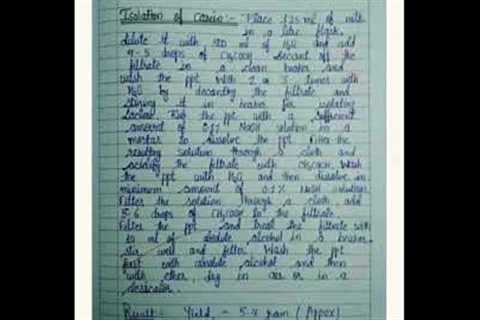 Isolation of Casein:- Place 125 ml of milk
in a litre flask,
dilute it with 500 ml of H2O and add
4-5 drops of CH3COOH. Decant off the
filtrate in a clean beaker and
wash the ppt. with 2 or 3 times with
H2O by decanting the filtrate and
stirring it in beaker for isolating
lactose. Rub the ppt with a sufficient
amount of 0.1% NaOH solution in a
mortar to dissolve the ppt. Filter the
resulting solution through a cloth and
acidify the filtrate with CH3COOH. Wash
the ppt with H2O and then dissolve in
minimum amount of 0.1% NaOH solution.
Filter the solution through a cloth add
5-6 drops of CH3COOH to the filtrate.
Filter the ppt and treat the filtrate with
10 ml of alcohol in a beaker.
Stir well and filter. Wash the ppt
first with alcohol and then
with ether, dry in air or in a
desiccator.
Result: Yield, - gram (Appox)